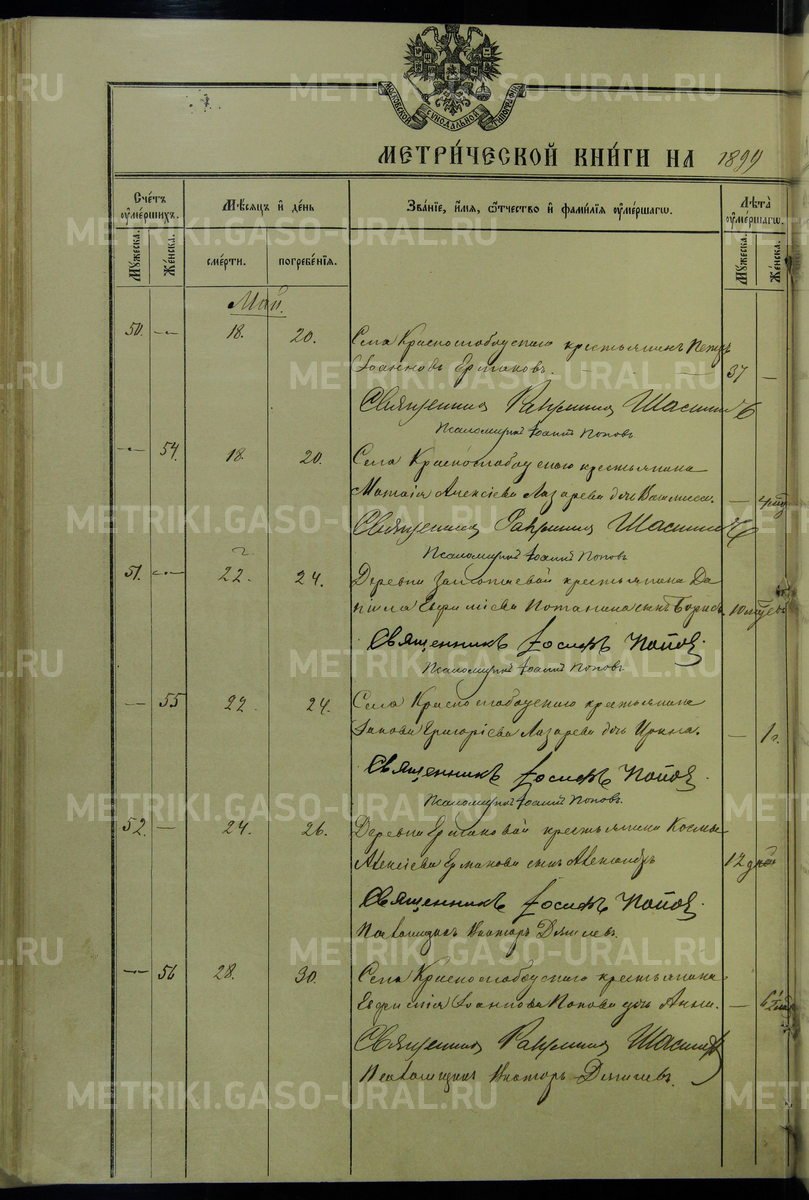 МОСКОВСКОЙ СѴНОДАЛЬНОЙ ТИПОГРАФІИ
МЕТРИ́ЧЕСКОЙ КНИ́ГИ НА 1899
Сче́тъ ѹме́ршихъ.
Мѣ́сяцъ и де́нь
Зва́нїе, и́мѧ, ѻ҆́тчество и҆ фами́лїѧ ѹ҆ме́ршагѡ.
Лѣ́та ѹ҆ме́ршагѡ.
Мꙋ́жеска.
Же́нска.
сме́рти.
погребе́нїѧ.
Мꙋ́жеска.
Же́нска.
Май.
50. — 18. 20. Села Краснослободскаго крестьянинъ Петръ
Іоанновъ Ермаковъ. — 37 —
Священникъ
Псаломщикъ Іоаннъ Поповъ
— 54. 18. 20. Села Краснослободскаго крестьянина
Алексіева Лазарева дочь —
Священникъ
Псаломщикъ Іоаннъ Поповъ
51. — 22. 24. Деревни крестьянина Да
ніила Евфиміева Потанина сынъ Борисъ. 10
Священникъ Іосифъ Поповъ.
Псаломщикъ Іоаннъ Поповъ.
— 55 22. 24. Села Краснослободскаго крестьянина
Іакова Григоріева Лазарева дочь Ирина. — 1 г.
Священникъ Іосифъ Поповъ.
Псаломщикъ Іоаннъ Поповъ.
52. — 24. 26. Деревни Ермаковой крестьянина Космы
Алексіева Ермакова сынъ Александръ 12 дней
Священникъ Іосифъ Поповъ.
Псаломщикъ Викторъ
— 56 28. 30. Села Краснослободскаго крестьянина
Евфимія Іоаннова Попова дочь Анна. —
Священникъ
Псаломщикъ Викторъ
METRIKI.GASO-URAL.RU